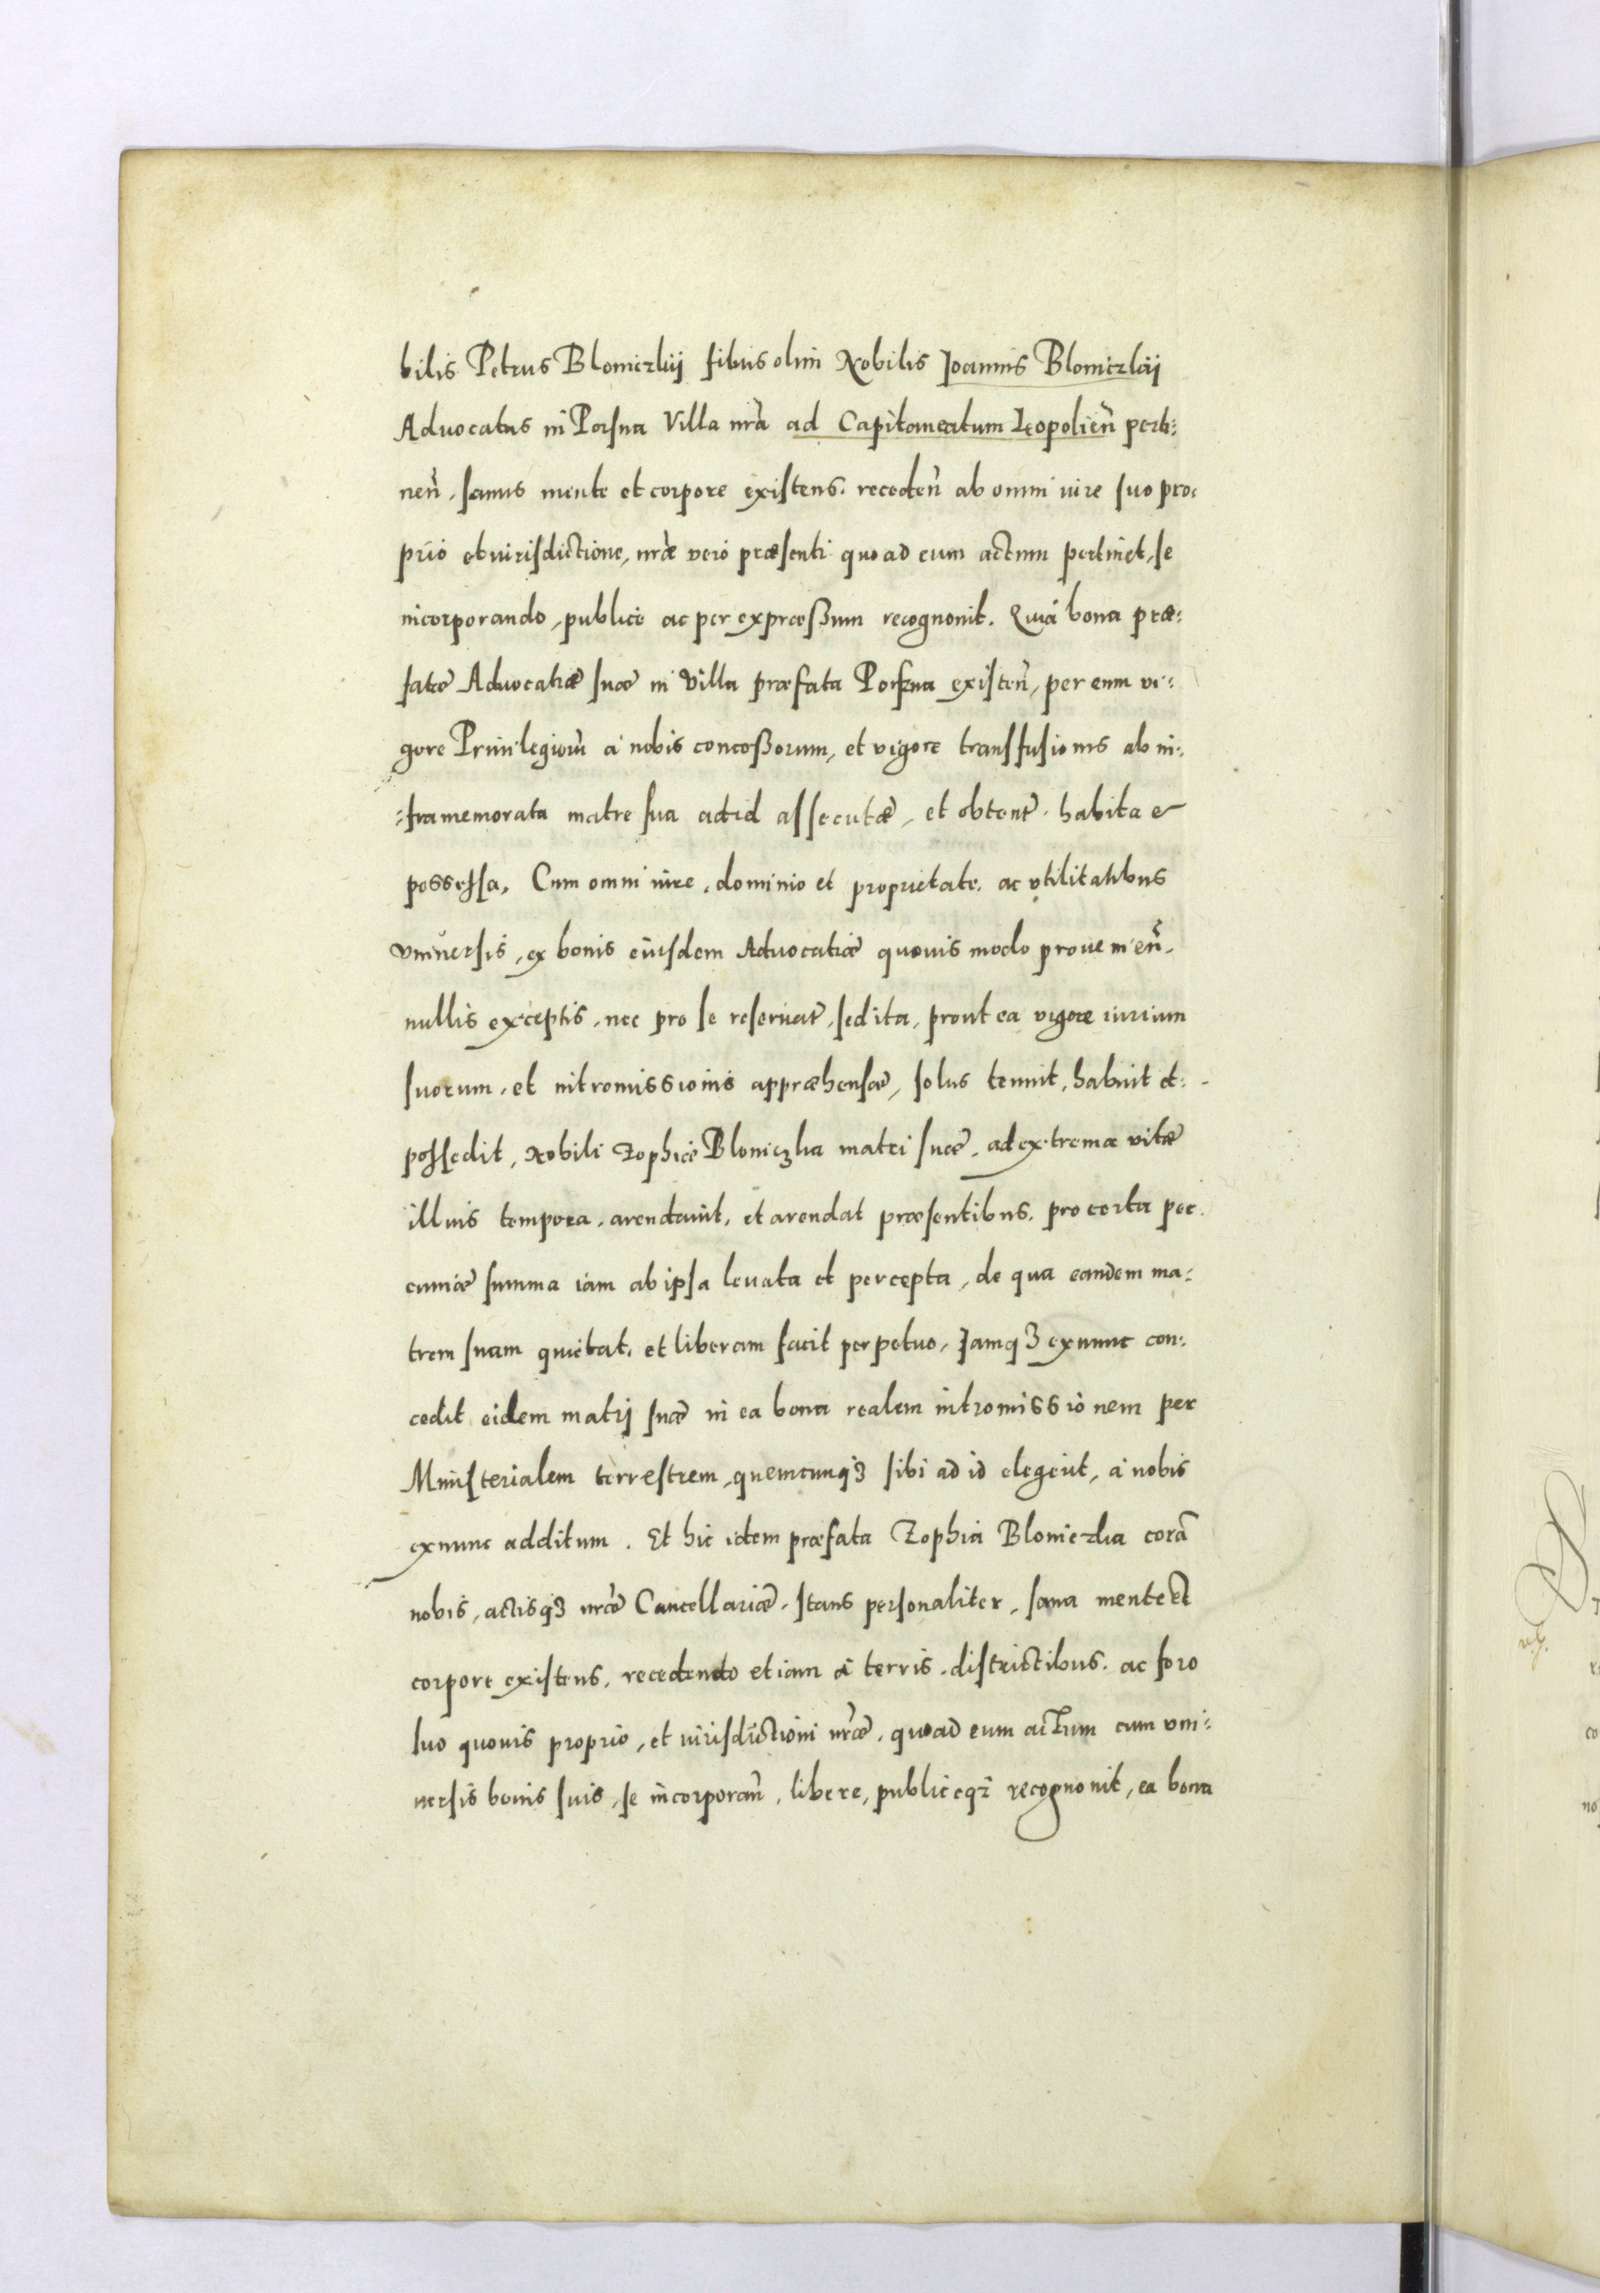 bilis Petrus Bloniczkij filius olim Nobilis Joannis Bloniczkij
Advocatus in Porsna Villa nrã ad Capitaneatum Leopolien̄ perti-
nen̄, sanus mente et corpore existens, receden̄ ab omni iure suo pro-
prio et iurisdictione, nræ vero præsenti quoad eum actum pertinet, se
incorporando, publice ac per expressum recognouit. Quia bona præ-
fatæ Advocatiæ suæ in Villa præfata Porszna existen̄, per eum vi-
gore Priuilegiorũ a nobis concessorum, et vigore transfusionis ab in-
framemorata matre sua ad id assecutæ, et obtent̃, habita et
possessa, Cum omni iure, dominio et proprietate, ac vtilitatibus
vniuersis, ex bonis eiusdem Advocatiæ quouis modo prouenien̄,
nullis exceptis, nec pro se reseruat̃, sed ita, prout ea vigore iurium
suorum, et intromissionis appræhensæ, solus tenuit, habuit et
possedit, Nobili Zophiæ Bloniczka matri suæ, ad extrema vitæ
illius tempora, arendauit, et arendat præsentibus, pro certa pec
cuniæ summa iam ab ipsa leuata et percepta, de qua eandem ma-
trem suam quietat, et liberam facit perpetuo, Jamqꝫ exnunc con-
cedit eidem matrj suæ in ea bona realem intromissionem per
Ministerialem terrestrem, quemcunqꝫ sibi ad id elegerit, a nobis
exnunc additum. Et hic idem præfata Zophia Bloniczka corã
nobis, actisqꝫ nr̃æ Cancellariæ, stans personaliter, sana mente et
corpore existens, recedendo etiam a terris, districtibus, ac foro
suo quouis proprio, et iurisdictioni nr̃æ, quoad eum actum cum vni-
uersis bonis suis, se incorporan̄, libere, publiceqꝫ recognouit, ea bona